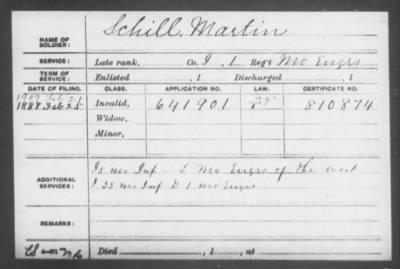 NAME OF SOLDIER: Schill, Martin
SERVICE: Late rank, Co. I, 1 Reg't Mo Engrs
TERM OF SERVICE: Enlisted , 1 Discharged , 1
DATE OF FILING. CLASS. APPLICATION NO. LAW. CERTIFICATE NO.
1907 Feb 21
1888 Feb 25 Invalid, 641901 810874
Widow,
Minor,
I 5 mo Inf - L Mo Engrs of the west
ADDITIONAL SERVICES: I 25 mo Inf D 1 mo Engrs
REMARKS:
Died , 1 , at